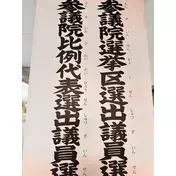 参議院選挙区選出議員選
参議院比例代表選出議員選